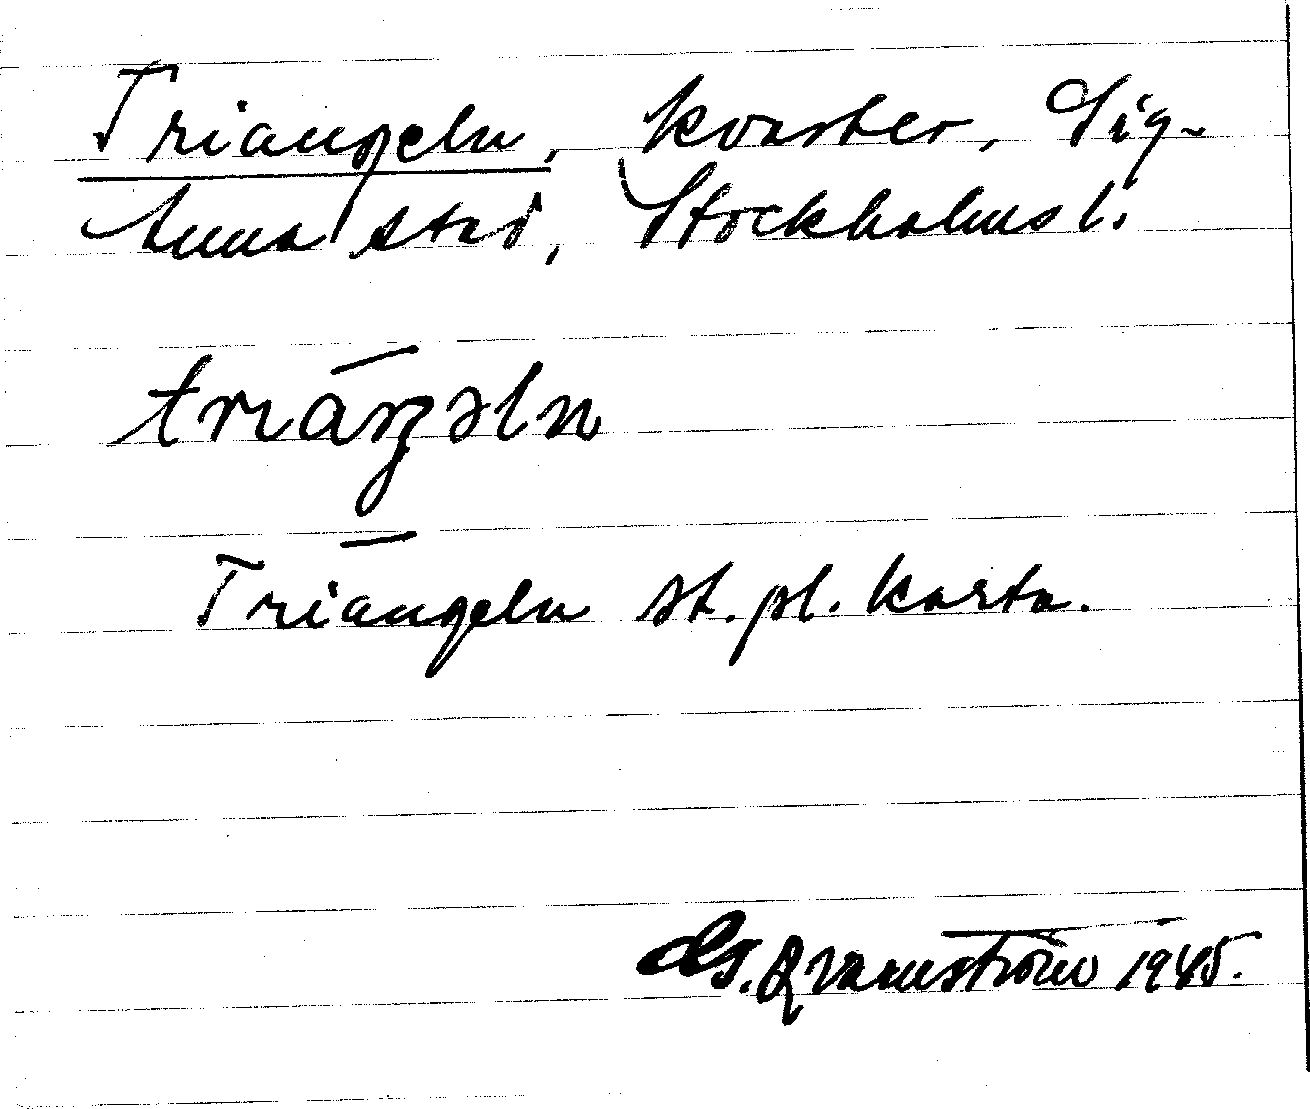 Triangeln, kvarter, Sig-
tuna stad, Stockholms l.
triáŋgəln
Triangeln st. pl. karta.
G. Qvarnström 1945.